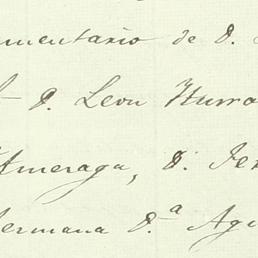 mentario de D.
D. Leon Iturra
Amezaga, D. Fer
hermana D.ª Agu